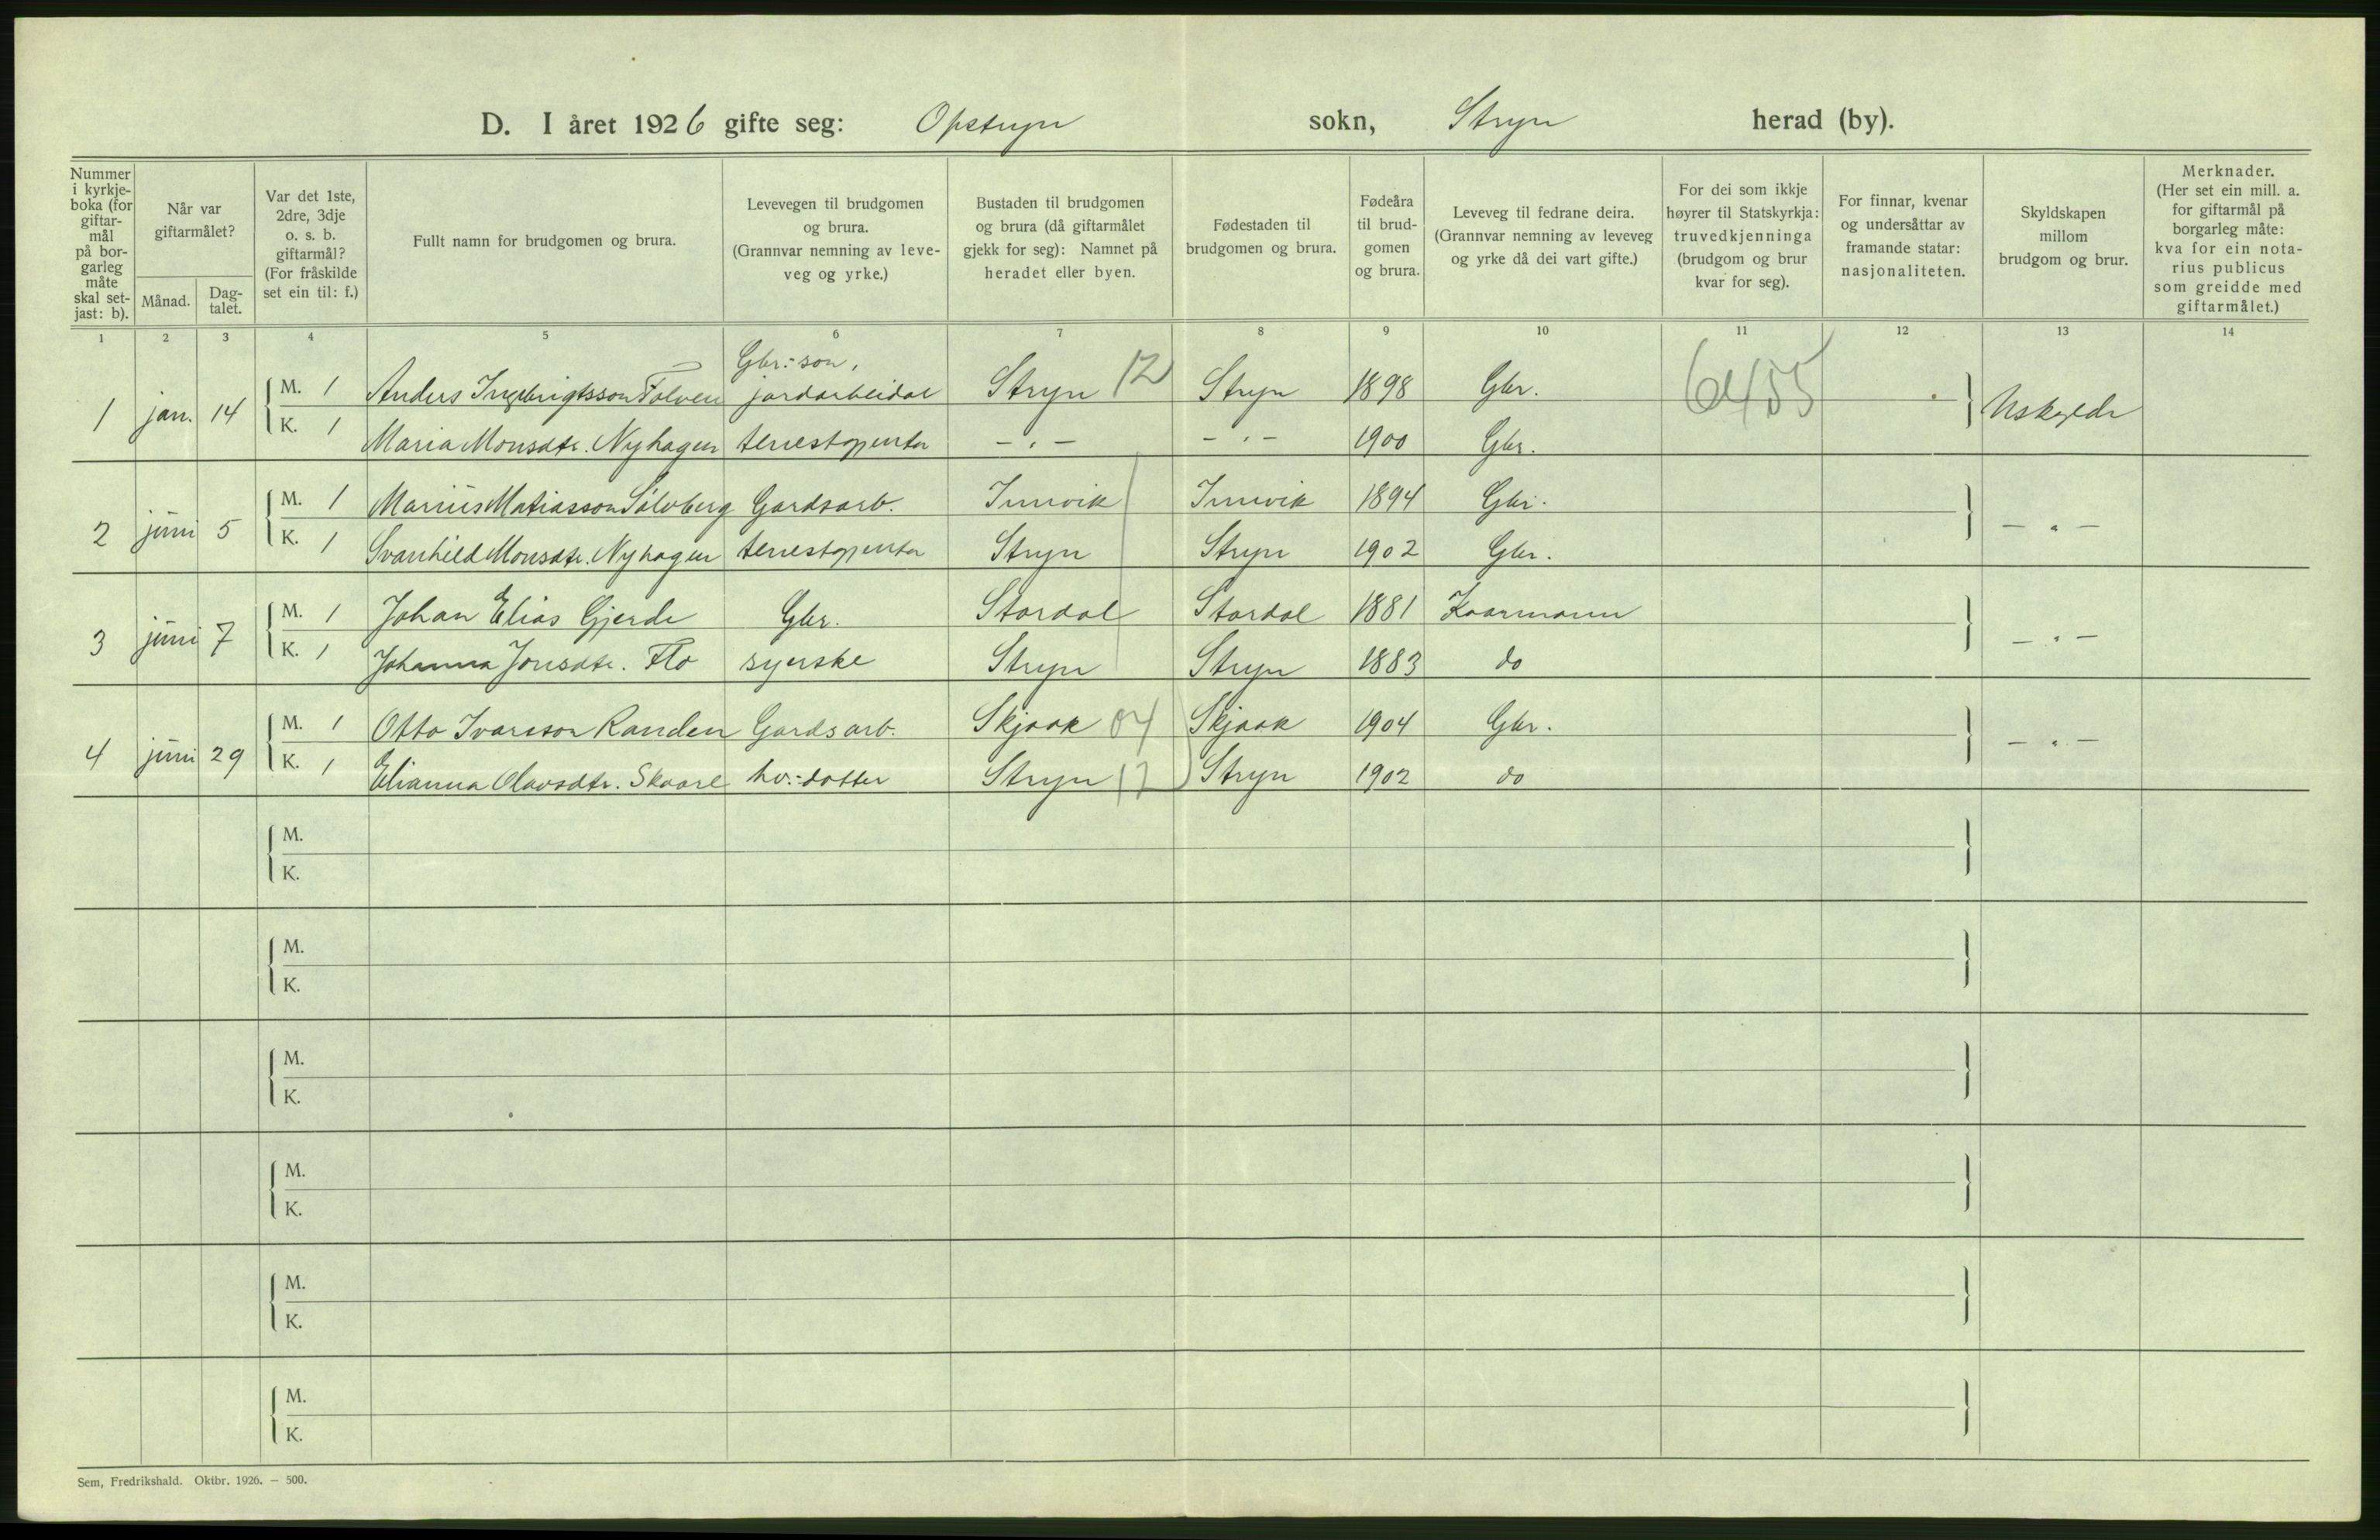 D. I året 1926 gifte seg: Opstryn sokn, Stryn herad (by).
Nummer i kyrkje-boka (for giftar-mål på bor-garleg måte skal set-jast: b).
Når var giftarmålet?
Månad.
Dag-talet.
Var det 1ste, 2dre, 3dje o. s. b. giftarmål? (For fråskilde set ein til: f.)
Fullt namn for brudgomen og brura.
Levevegen til brudgomen og brura. (Grannvar nemning av leve-veg og yrke.)
Bustaden til brudgomen og brura (då giftarmålet gjekk for seg): Namnet på heradet eller byen.
Fødestaden til brudgomen og brura.
Fødeåra til brud-gomen og brura.
Leveveg til fedrane deira. (Grannvar nemning av leveveg og yrke då dei vart gifte.)
For dei som ikkje høyrer til Statskyrkja: truvedkjenninga (brudgom og brur kvar for seg).
For finnar, kvenar og undersåttar av framande statar: nasjonaliteten.
Skyldskapen millom brudgom og brur.
Merknader. (Her set ein mill. a. for giftarmål på borgarleg måte: kva for ein nota-rius publicus som greidde med giftarmålet.)
1 2 3 4 5 6 7 8 9 10 11 12 13 14
Gbr.-son,
1 jan. 14 M. 1 Anders Ingebrigtsson Folven jordarbeidar Stryn 12 Stryn 1898 Gbr. 6455 Uskylde
K. 1 Maria Monsdtr. Nyhagen tenestgjenta - " - - " - 1900 Gbr.
2 juni 5 M. 1 Marius Matiasson Sølvberg Gardsarb. Innvik Innvik 1894 Gbr. - " -
K. 1 Svanhild Monsdtr. Nyhagen tenestgjenta Stryn Stryn 1902 Gbr.
3 juni 7 M. 1 Johan Elias Gjerde Gbr. Stordal Stordal 1881 Kaarmann - " -
K. 1 Johanna Jonsdtr. Flo syerske Stryn Stryn 1883 do
4 juni 29 M. 1 Otto Ivarsson Randen Gardsarb. Skjaak 04 Skjaak 1904 Gbr. - " -
K. 1 Elianna Olavsdtr. Skaare hv.-dotter Stryn 12 Stryn 1902 do
M.
K.
M.
K.
M.
K.
M.
K.
M.
K.
M.
K.
Sem, Fredrikshald. Oktbr. 1926. — 500.